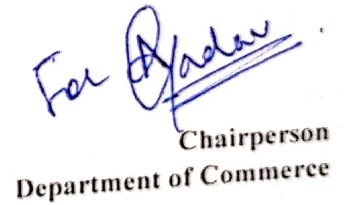 For Yadav
Chairperson
Department of Commerce